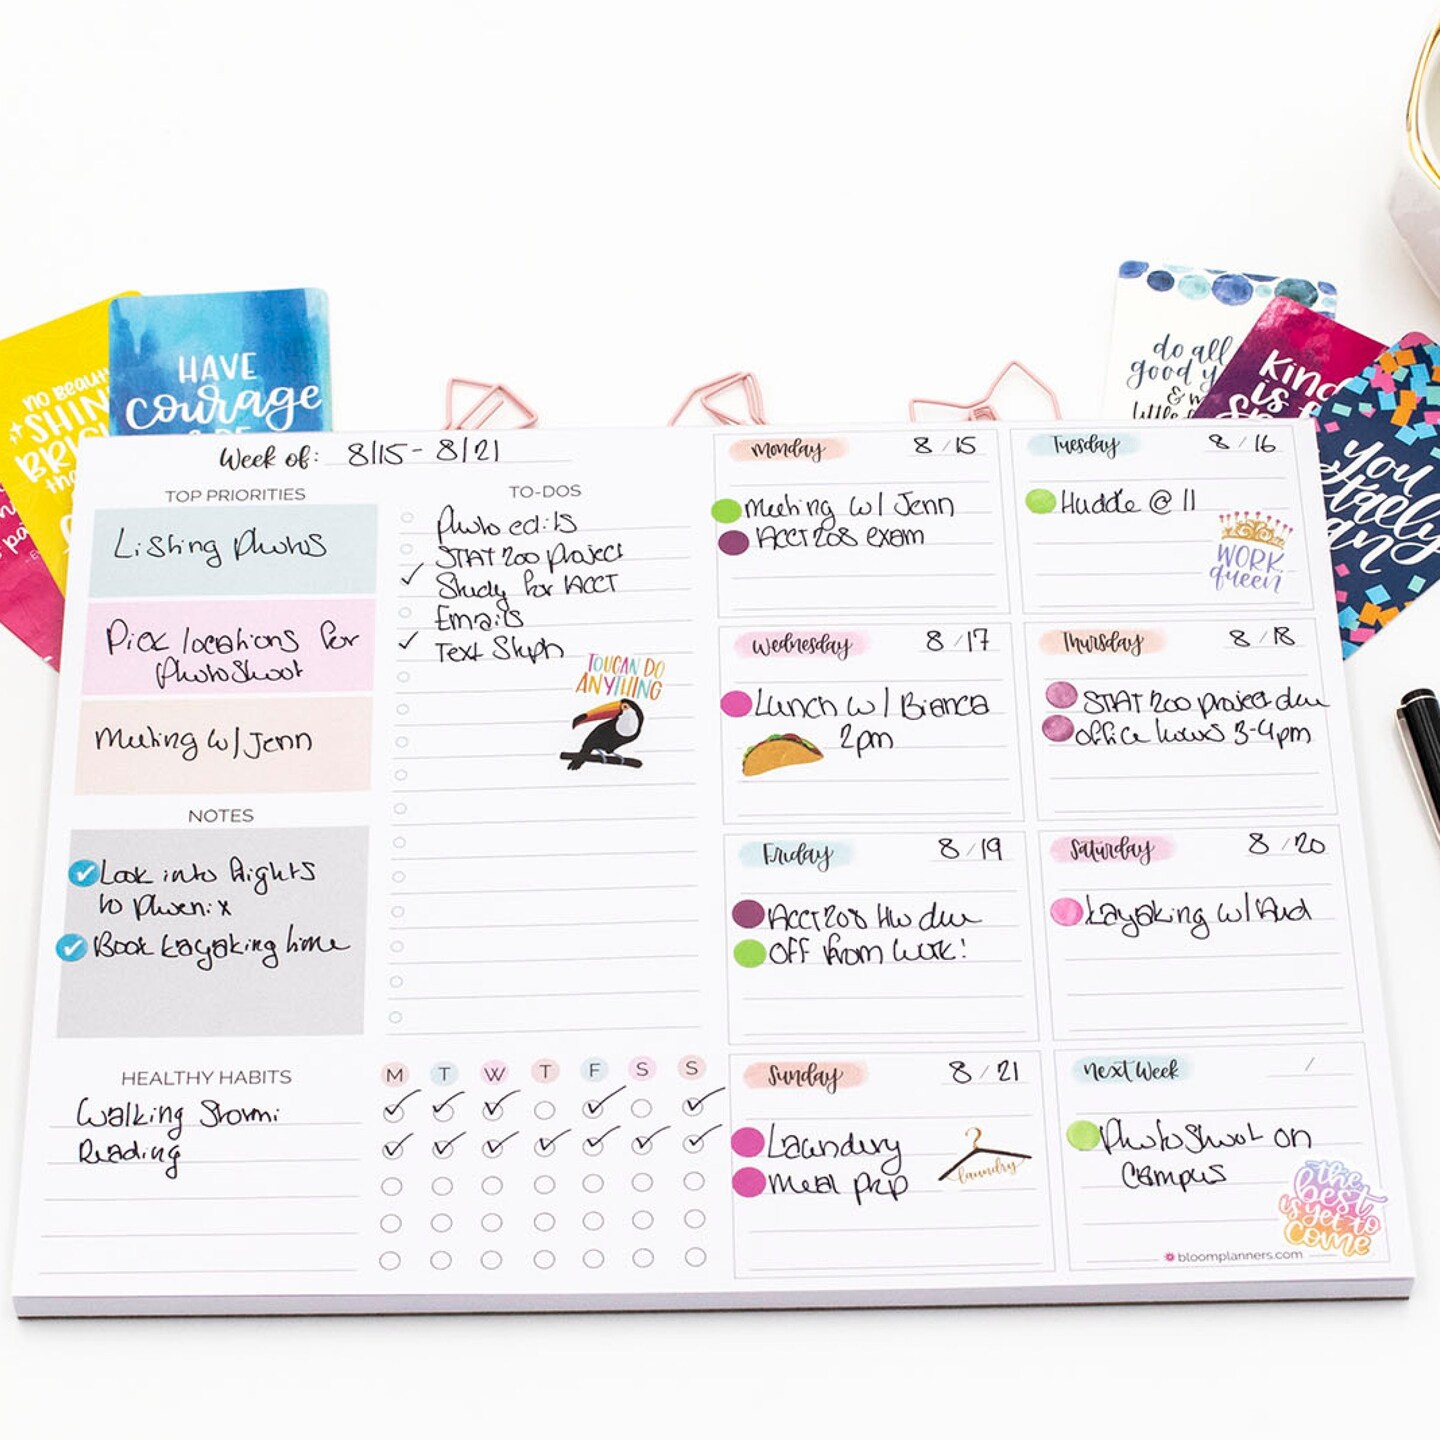 NO BEAUTY
SHINES
BRIGHTER
than
HAVE
courage
& BE
do all
good y
& m
little f
Kind
is f
you
totally
can
Week of: 8/15 - 8/21
TOP PRIORITIES
Listing photos
Pick locations for
photoshoot
Meeting w/ Jenn
NOTES
Look into flights
to Phoenix
Book kayaking time
TO-DOS
Photo edits
STAT 200 project
Study for ACCT
Emails
Text Steph
TOUCAN DO
ANYTHING
HEALTHY HABITS
M T W T F S S
Walking Stormi
Reading
Monday 8/15
Meeting w/ Jenn
ACCT 208 exam
Tuesday 8/16
Huddle @ 11
WORK
queen
Wednesday 8/17
Lunch w/ Bianca
2pm
Thursday 8/18
STAT 200 project due
office hours 3-4pm
Friday 8/19
ACCT 208 HW due
OFF from work!
Saturday 8/20
Kayaking w/ Aud
Sunday 8/21
Laundry
Meal prep
laundry
next week /
Photoshoot on
campus
the
best
is yet to
come
bloomplanners.com